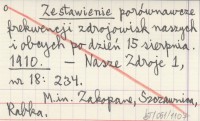 Zestawienie porównawcze
frekwencji zdrojowisk naszych
i obcych po dzień 15 sierpnia.
1910. — Nasze Zdroje 1,
nr 18: 234.
M.in. Zakopane, Szczawnica,
Rabka.